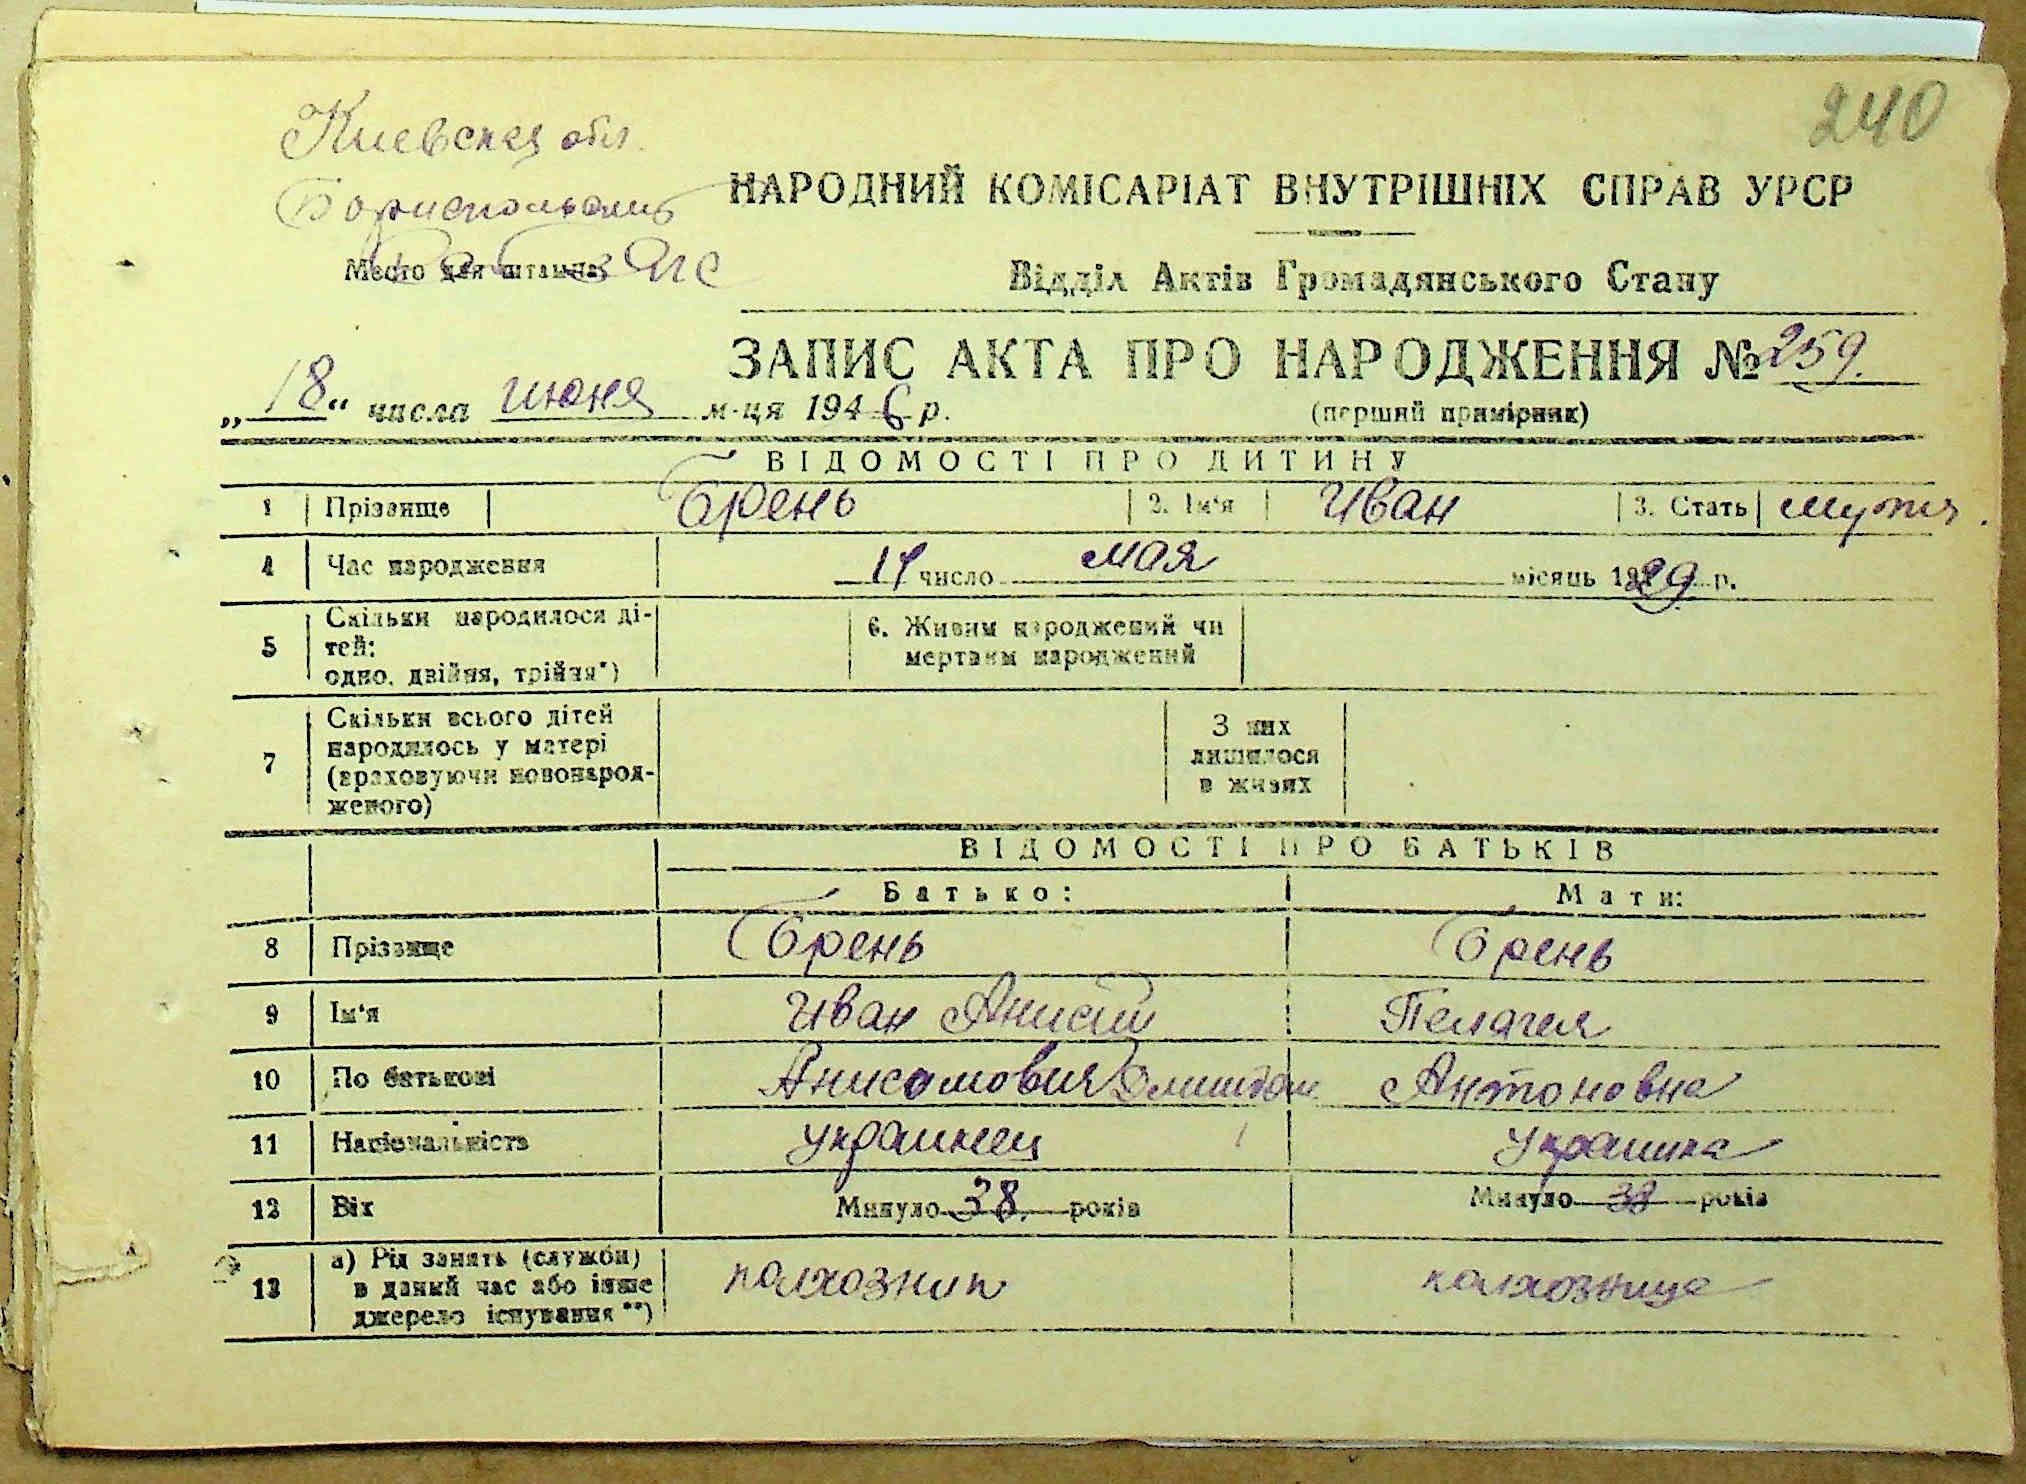 240
Киевская обл.
Бориспольский
НАРОДНИЙ КОМІСАРІАТ ВНУТРІШНІХ СПРАВ УРСР
Место для штампа ЗАГС
Відділ Актів Громадянського Стану
ЗАПИС АКТА ПРО НАРОДЖЕННЯ № 259.
„18“ числа июня м-ця 1946 р.
(перший примірник)
ВІДОМОСТІ ПРО ДИТИНУ
1 Прізвище Брень 2. Ім'я Иван 3. Стать мужч.
4 Час народження 14 число мая місяць 1929 р.
5 Скільки народилося ді-
тей:
одно, двійня, трійня*)
6. Живим народжений чи
мертвим народжений
7 Скільки всього дітей
народилось у матері
(враховуючи новонарод-
женого)
З них
лишилося
в живих
ВІДОМОСТІ ПРО БАТЬКІВ
Батько: Мати:
8 Прізвище Брень Брень
9 Ім'я Иван Анисим Пелагея
10 По батькові Анисимович Антоновна
11 Національність украинец украинка
12 Вік Минуло 38 років Минуло 38 років
13 а) Рід занять (служби)
в даний час або інше
джерело існування**)
колхозник колхозница